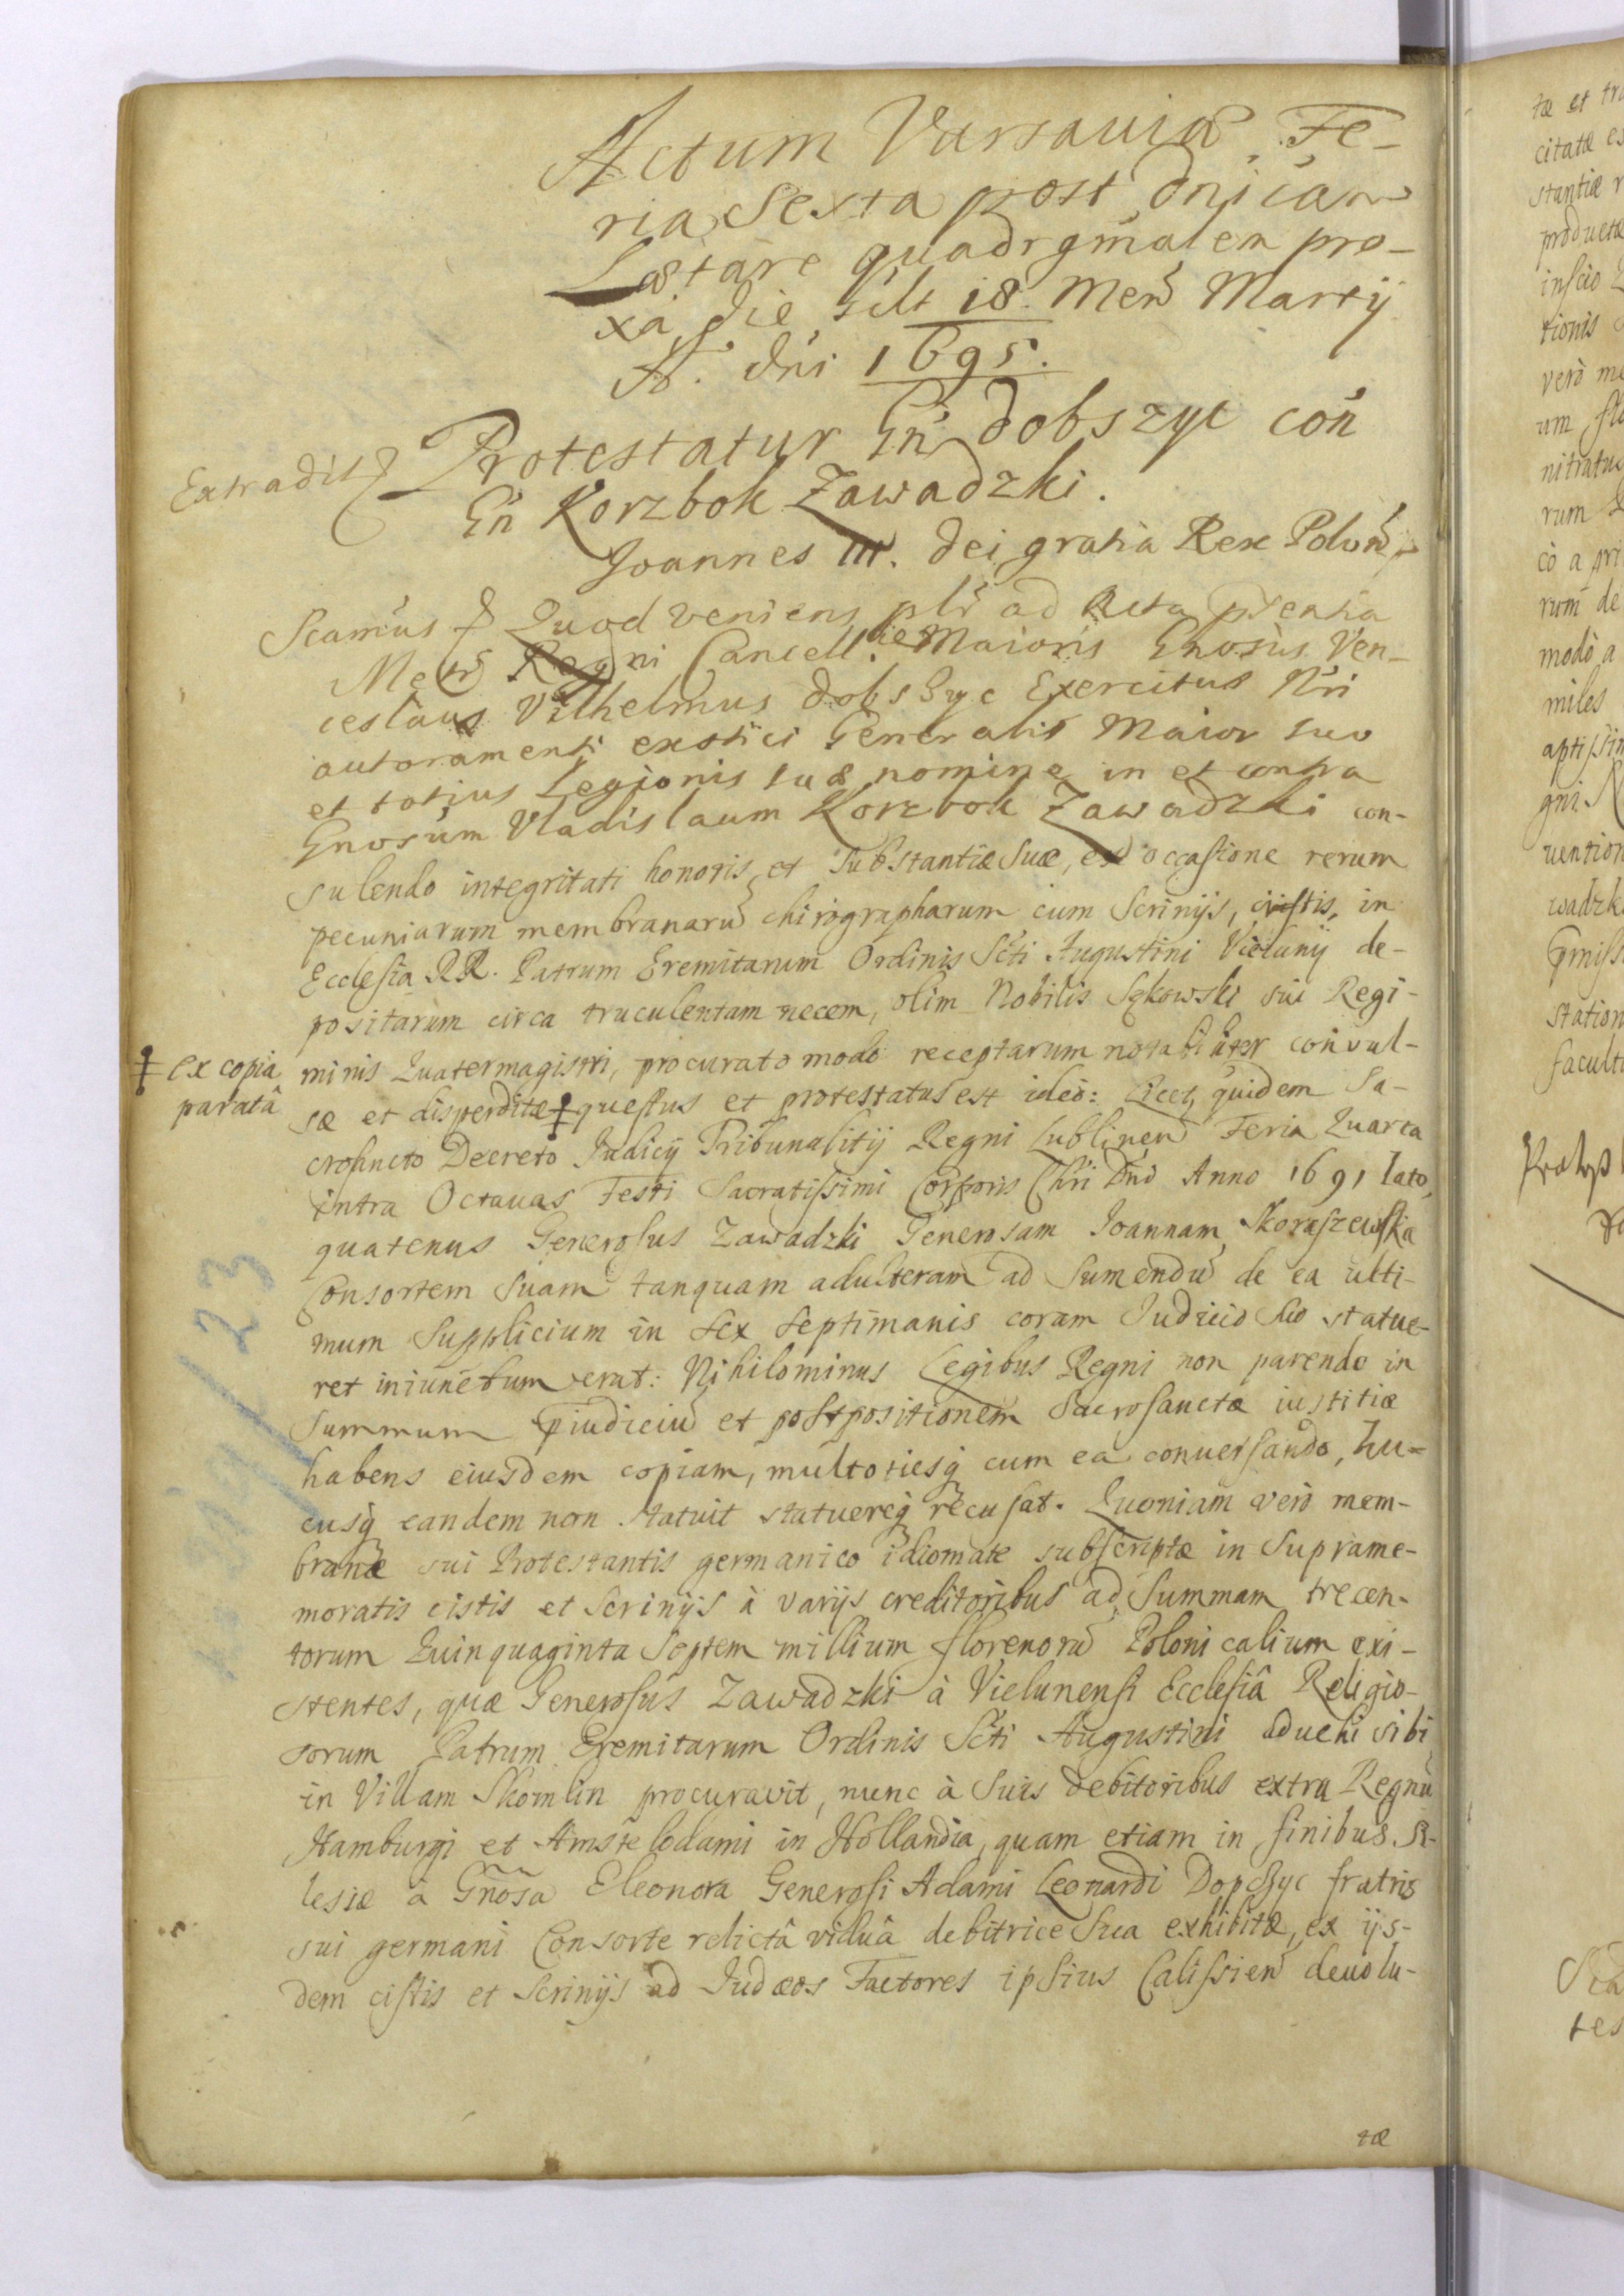 Actum Varsaviæ Fe-
ria Sexta post Dnicam
Lætare quadrgmalem pro-
xa, die scilt 18. Men Martij
A. dni 1695.
Extradit
Protestatur Gn Dobszyc con
Gn Korzbok Zawadzki.
Joannes III. Dei gratia Rex Polon
Scamus Quod veniens plr ad Acta prentia
Metr Regni Cancell Maioris Gnosus Ven-
ceslaus Vilhelmus Dobszyc Exercitus Nri
autoramenti exotici Generalis Maior suo
et totius Legionis suæ nomine in et contra
Gnosum Vladislaum Korzbok Zawadzki con-
sulendo integritati honoris, et Substantiæ Suæ, ex occasione rerum
pecuniarum membranaru chirographarum cum Scrinijs, cistis, in
Ecclesia RR. Patrum Eremitarum Ordinis Scti Augustini Vielunij de-
positarum circa truculentam necem, olim Nobilis Sękowski sui Regi-
ex copia
parata
minis Quatermagistri, procurato modo receptarum notabiliter convul-
sæ et disperditæ questus et protestatus est ideo: Licet quidem Sa-
crosncto Decreto Judicij Tribunalitij Regni Lublinen Feria Quarta
intra Octavas Festi Sacratissimi Corporis Chri Dni Anno 1691 lato,
quatenus Generosus Zawadzki Generosam Ioannam Skoraszewska
Consortem Suam tanquam adulteram ad Sumendu de ea ulti-
mum Supplicium in sex septimanis coram Judicio suo statue-
ret iniunctum erat: Nihilominus Legibus Regni non parendo in
Summum piudiciu et postpositionem Sacrosanctæ iustitiæ
habens eiusdem copiam, multotiesq cum ea conversando, hu-
cusq eandem non statuit statuereq recusat. Quoniam vero mem-
branæ sui Protestantis germanico idiomate subscriptæ in Suprame-
moratis cistis et Scrinijs à varijs creditoribus ad Summam trecen-
torum Quinquaginta Septem millium florenoru Polonicalium exi-
stentes, quæ Generosus Zawadzki à Vielunensi Ecclesiâ Religio-
sorum Patrum Eremitarum Ordinis Scti Augustini aduehi sibi
in Villam Skomlin procuravit, nunc à Suis debitoribus extra Regnu
Hamburgi et Amstelodami in Hollandia, quam etiam in finibus Si-
lesiæ à Gnosa Eleonora Generosi Adami Leonardi Dopszyc fratris
sui germani Consorte relictâ viduâ debitrice Sua exhibitæ, ex ijs-
dem cistis et Scrinijs ad Judæos Factores ipsius Calissien devolu-
tæ